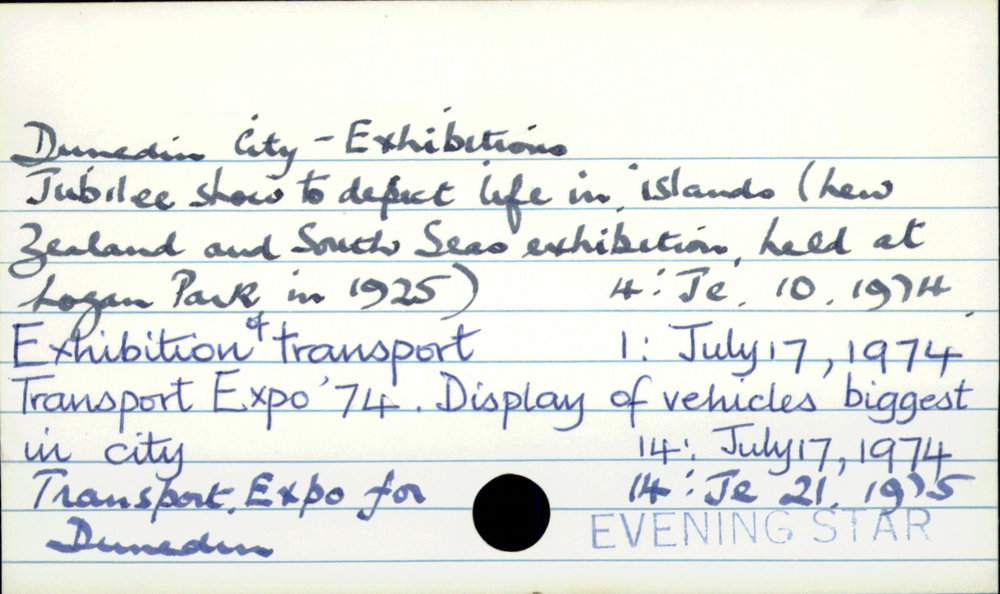 Dunedin City - Exhibitions
Jubilee show to depict life in islands (New
Zealand and South Seas exhibition, held at
Logan Park in 1925) 4: Je. 10. 1974
Exhibition of transport 1: July 17, 1974
Transport Expo '74. Display of vehicles biggest
in city 14: July 17, 1974
Transport Expo for 14: Je 21. 1975
Dunedin
EVENING STAR